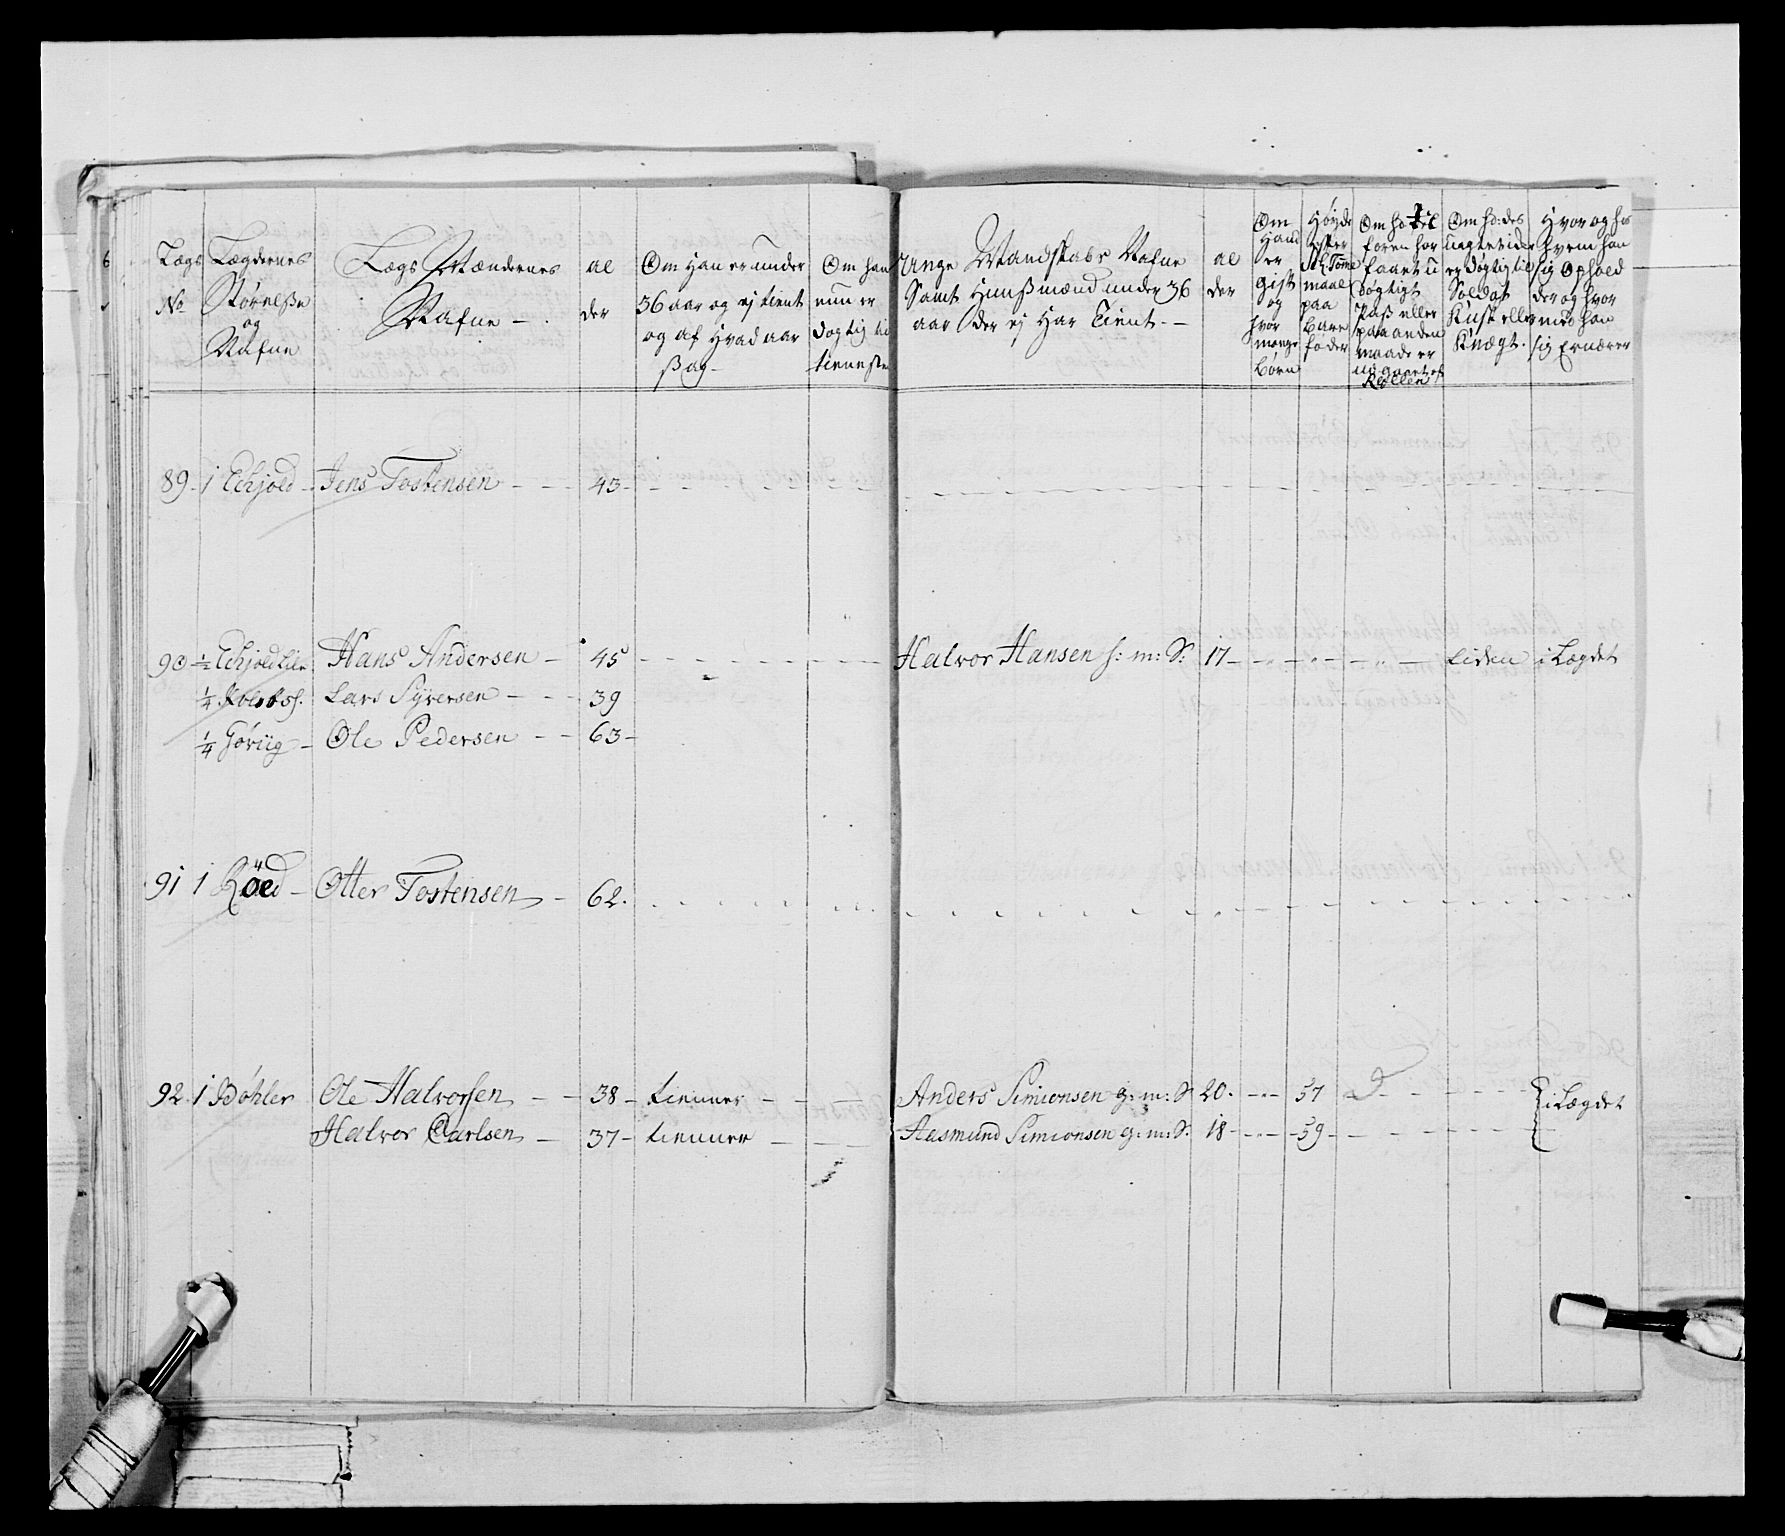 Lægs No
Lægdernes Størrelse og Nafne
Lægs Mændernes Nafne
al der
Om Han er under 36 aar og ej tient og af Hvad aarsag
Om han nu er dygtig til tieneste
Unge Mandskabs Nafne Samt Huusmænd under 36 aar der ej Har Tient.
al der
Om Hand er gift og hvor mange Børn
Høyde efter Sel. Tome maal paa Bare føder
Om hd til foren har faaet u døgtigt Pass eller paa anden maade er udgaaet af Rollen
Om hd: des Lægtetider er døgtig til Soldat Kusk eller Knægt.
Hvor og hos hvem han sig Opholder og hvor med han sig Ernærer
89 - 1 Echjold - Jens Tostensen - 43 -
90 - 1/2 Echjold Lien Hans Andersen - 45 - Halvor Hansen h: m: S: 17 - liden i Lægdet
1/4 Lars Syversen - 39
1/4 Ole Pedersen - 63 -
91 1 Röed - Otter Tostensen - 62.
92 1 Bøhler Ole Halvorsen - 38 - tienner - Anders Simionsen g: m: S 20. - 57 D - i Lægdet
Halvor Carlsen - 37 - tienner - Aasmund Simionsen g: m: S. 18 - 59 -